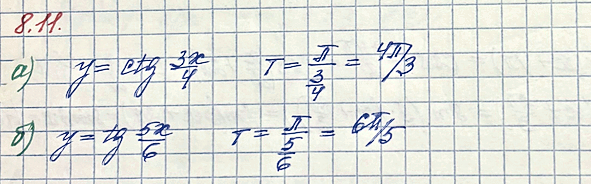 8.11.
а) y = ctg 3x/4 T = π/(3/4) = 4π/3
б) y = tg 5x/6 T = π/(5/6) = 6π/5